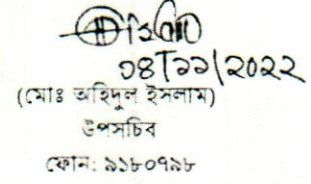 ০৪/১১/২০২২
(মোঃ অহিদুল ইসলাম)
উপসচিব
ফোন: ৯১৮০৭৯৮